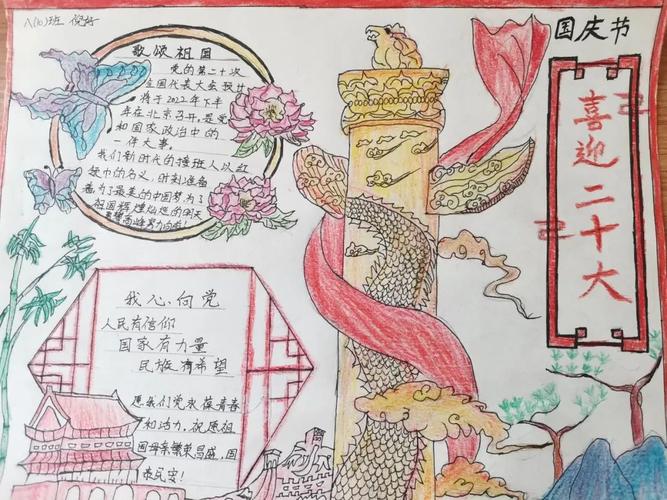 八(10)班 倪好
国庆节
喜迎二十大
歌颂祖国
党的第二十次
全国代表大会预计
将于2022年下半
年在北京召开,是党
和国家政治中的
一件大事。
我们新时代的接班人以红
领巾的名义,时刻准备
着为了最美的中国梦,为了
祖国辉煌灿烂的明天
努力向前
我心向党
人民有信仰
国家有力量
民族有希望
愿我们党永葆青春
和活力,祝愿祖
国母亲繁荣昌盛,国
泰民安!